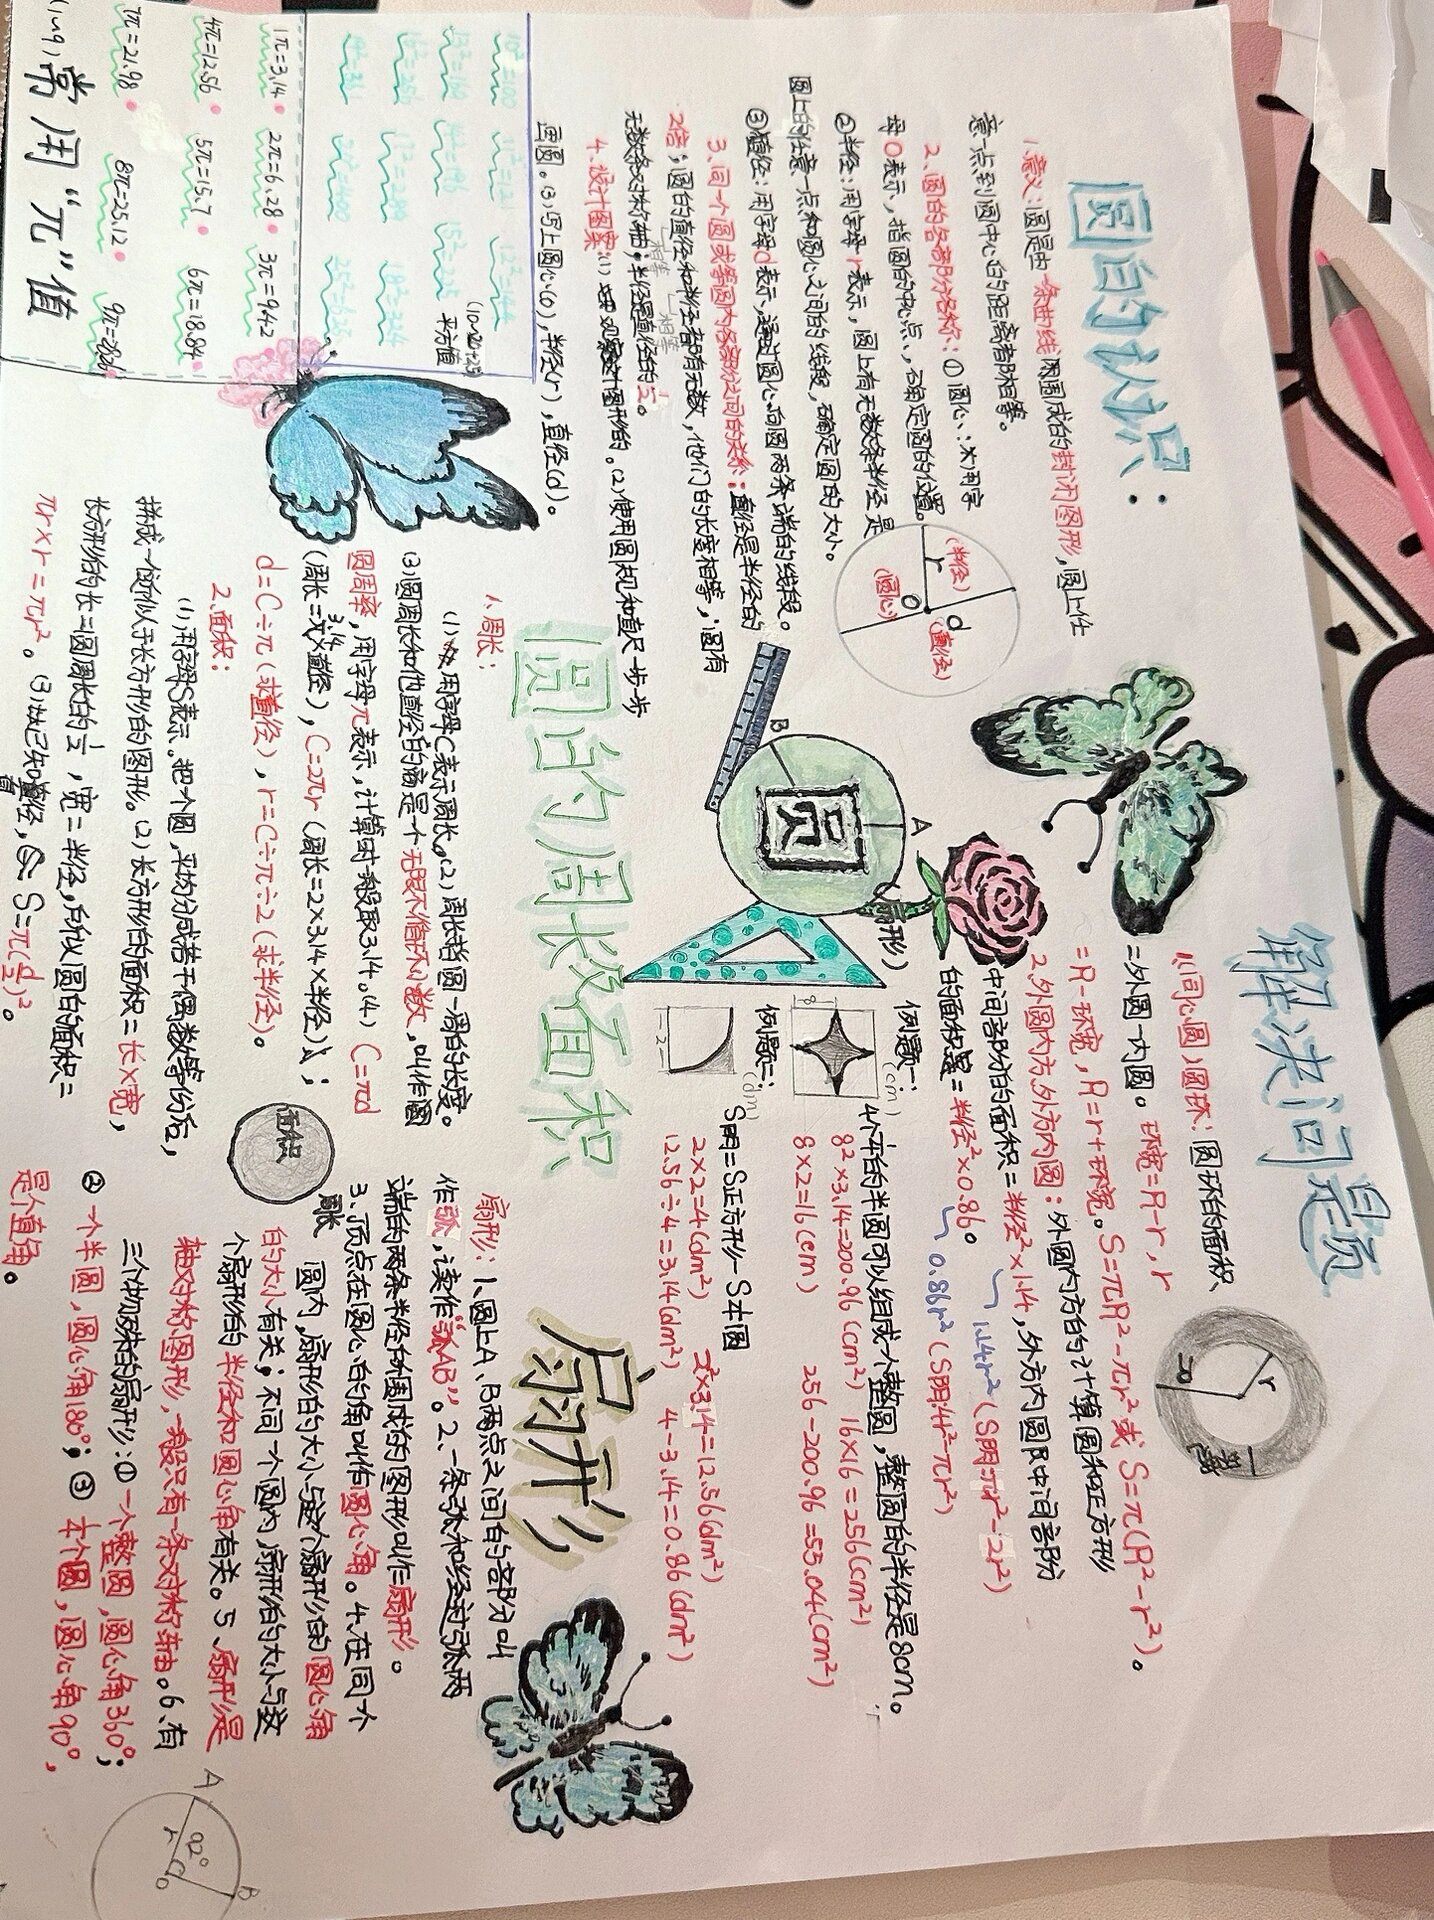 圆的认识：
1.意义：圆是由一条曲线围成的封闭图形，圆上任
意一点到圆中心的距离都相等。
2.圆的各部分名称：①圆心：用字
母O表示，指圆的中心点，确定圆的位置。
②半径：用字母r表示，圆上有无数条半径是
圆上的任意一点和圆心之间的线段，确定圆的大小。
③直径：用字母d表示，通过圆心向圆两条端的线段。
3.同一个圆或等圆内各部分之间的关系：直径是半径的
2倍；圆的直径和半径都有无数，他们的长度相等，圆有
相等 相等
无数条对称轴；半径是直径的½。
4.设计图案：(1)观察设计图形的。(2)使用圆规和直尺一步步
画圆。(3)写上圆心(o)，半径(r)，直径(d)。
r
(半径)
O
(圆心)
d
(直径)
10²=100 11²=121 12²=144
13²=169 14²=196 15²=225
16²=256 17²=289 18²=324
19²=361 20²=400 25²=625
(10~20+25)
平方值
1π=3.14 2π=6.28 3π=942
4π=12.56 5π=15.7 6π=18.84
7π=21.98 8π=25.12 9π=28.26
(1~9)常用“π”值
B
圆
A
(扇形)
解决问题
1.(同心圆)圆环：圆环的面积
=外圆-内圆。环宽=R-r，r
=R-环宽，R=r+环宽。S=πR²-πr²或S=π(R²-r²)。
2.外圆内方，外方内圆：外圆内方的计算圆和正方形
中间部分的面积=半径²×1.14，外方内圆中间部分
的面积是=半径²×0.86。
1.14r²(S阴=πr²-2r²)
0.86r²(S阴=4r²-πr²)
r
R
环宽
例题一：
(cm)
8
4个平的半圆可以组成一个整圆，整圆的半径是8cm。
8²×3.14=200.96(cm²) 16×16=256(cm²)
8×2=16(cm) 256-200.96=55.04(cm²)
例题二：
(dm)
2
S阴=S正方形-S¼圆
2×2=4(dm²) 2²×3.14=12.56(dm²)
12.56÷4=3.14(dm²) 4-3.14=0.86(dm²)
圆的周长终面积
1.周长：
(1)用字母C表示周长。(2)周长指圆一周的长度。
(3)圆周长和他直径的商是一个无限不循环小数，叫作圆
圆周率，用字母π表示，计算时一般取3.14。(4)C=πd
3.14
(周长=π×直径)，C=2πr(周长=2×3.14×半径)；
d=C÷π(求直径)，r=C÷π÷2(求半径)。
2.面积：
(1)用字母S表示。把一个圆，平均分成若干偶数等份后，
拼成一个近似于长方形的图形。(2)长方形的面积=长×宽，
长方形的长=圆周长的½，宽=半径，所以圆的面积=
πr×r=πr²。(3)如已知直径，S=π(d/2)²。
面积
周长
扇形
扇形：1.圆上A、B两点之间的部分叫
作弧，读作“弧AB”。2.一条弧和经过弧两
端的两条半径所围成的图形叫作扇形。
3.顶点在圆心的角叫作圆心角。4.在同一个
圆内，扇形的大小与这个扇形的圆心角
的大小有关；不同一个圆内，扇形的大小与这
个扇形的半径和圆心角有关。5.扇形是
轴对称图形，一般只有一条对称轴。6.有
三个特殊的扇形：①一个整圆，圆心角360°；
②一个半圆，圆心角180°；③¼个圆，圆心角90°，
是个直角。
A
r
92°
O
B